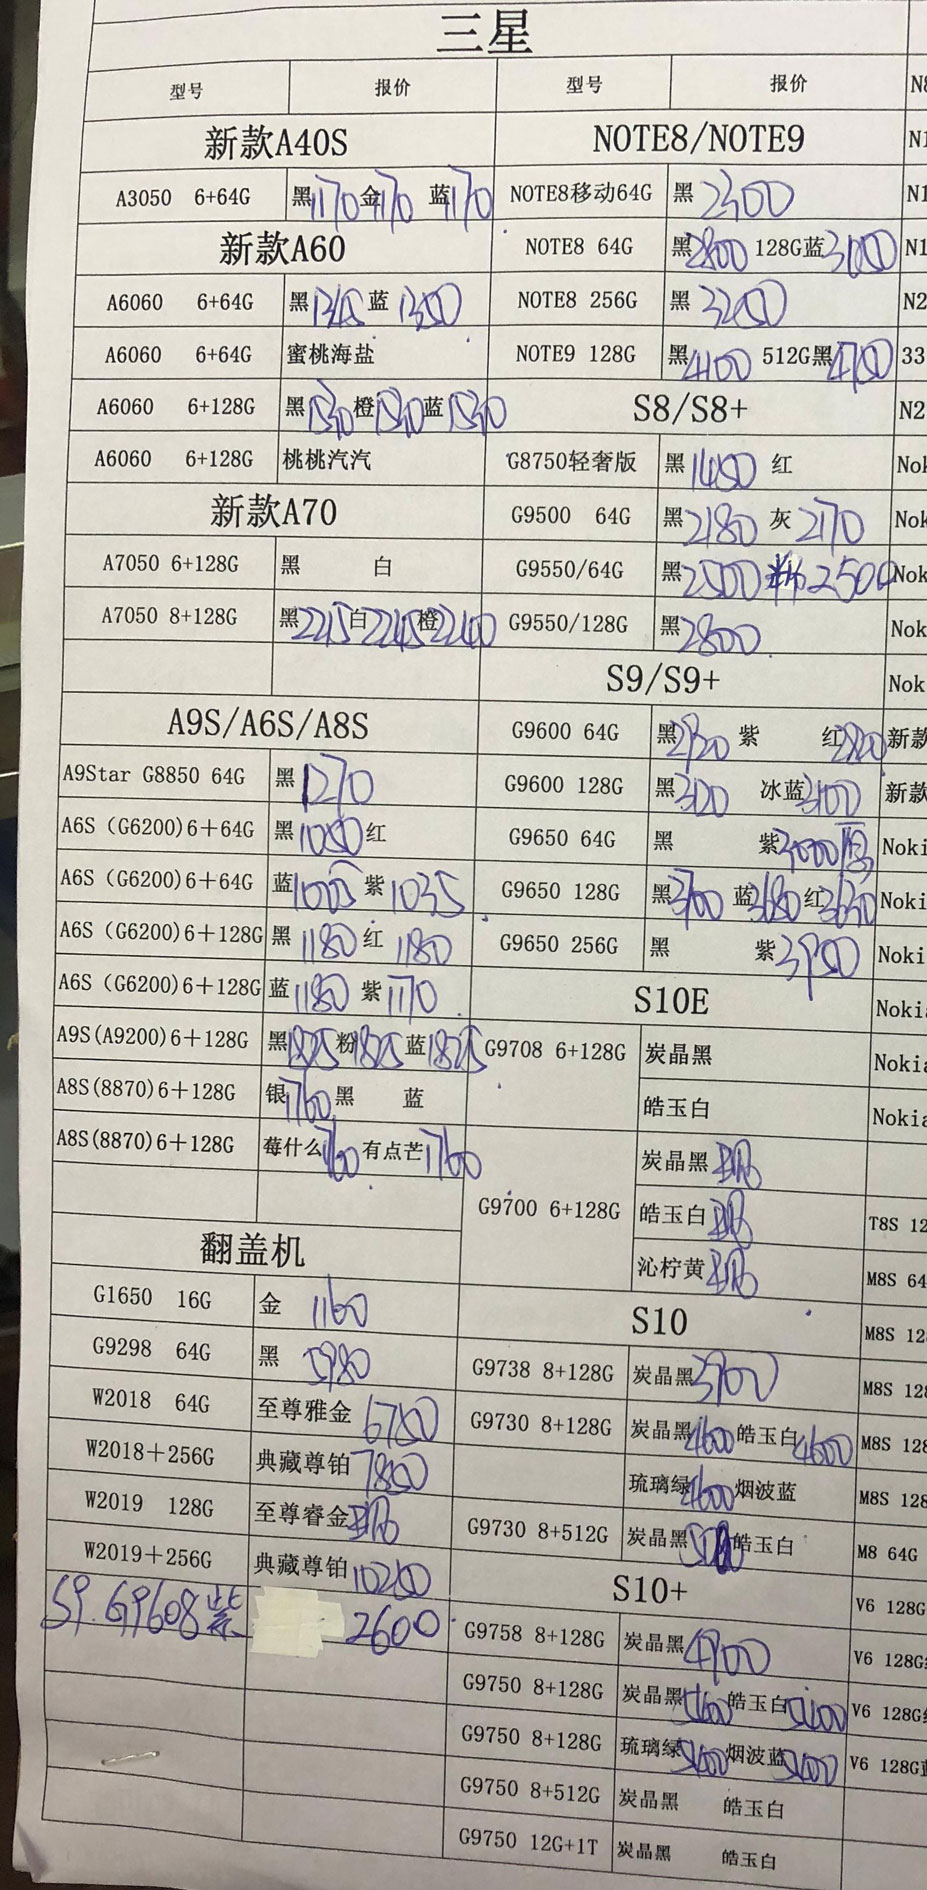 三星
型号 报价 型号 报价
新款A40S NOTE8/NOTE9
A3050 6+64G 黑1170 金1170 蓝1170 NOTE8移动64G 黑2300
新款A60 NOTE8 64G 黑2800 128G蓝3100
A6060 6+64G 黑1345 蓝1350 NOTE8 256G 黑3250
A6060 6+64G 蜜桃海盐 NOTE9 128G 黑4100 512G黑4700
A6060 6+128G 黑1530 橙1530 蓝1530 S8/S8+
A6060 6+128G 桃桃汽汽 G8750轻奢版 黑1450 红
新款A70 G9500 64G 黑2180 灰2170
A7050 6+128G 黑 白 G9550/64G 黑2500 粉2500
A7050 8+128G 黑2245 白2245 橙2240 G9550/128G 黑2800
S9/S9+
A9S/A6S/A8S G9600 64G 黑2920 紫 红2820
A9Star G8850 64G 黑1270 G9600 128G 黑3120 冰蓝3100
A6S（G6200)6+64G 黑1050 红 G9650 64G 黑 紫3000
A6S（G6200)6+64G 蓝1005 紫1035 G9650 128G 黑3700 蓝3680 红3630
A6S（G6200)6+128G 黑1180 红1180 G9650 256G 黑 紫3950
A6S（G6200)6+128G 蓝1180 紫1170 S10E
A9S(A9200)6+128G 黑1825 粉1825 蓝1825 G9708 6+128G 炭晶黑
A8S(8870)6+128G 银1760 黑 蓝 皓玉白
A8S(8870)6+128G 莓什么1760 有点芒1760 炭晶黑
G9700 6+128G 皓玉白
翻盖机 沁柠黄
G1650 16G 金 1160 S10
G9298 64G 黑 5980 G9738 8+128G 炭晶黑3900
W2018 64G 至尊雅金6750 G9730 8+128G 炭晶黑4600 皓玉白4600
W2018+256G 典藏尊铂7850 琉璃绿4600 烟波蓝
W2019 128G 至尊睿金 G9730 8+512G 炭晶黑 皓玉白
W2019+256G 典藏尊铂10250 S10+
S9. G9608紫 2600 G9758 8+128G 炭晶黑4900
G9750 8+128G 炭晶黑5400 皓玉白5400
G9750 8+128G 琉璃绿5400 烟波蓝5400
G9750 8+512G 炭晶黑 皓玉白
G9750 12G+1T 炭晶黑 皓玉白
N1
N1
N1
N2
33
N2
新款
新款
T8S 12
M8S 64
M8S 12
M8S 128
M8S 128
M8S 128
M8 64G
V6 128G
V6 128G
V6 128G
V6 128G